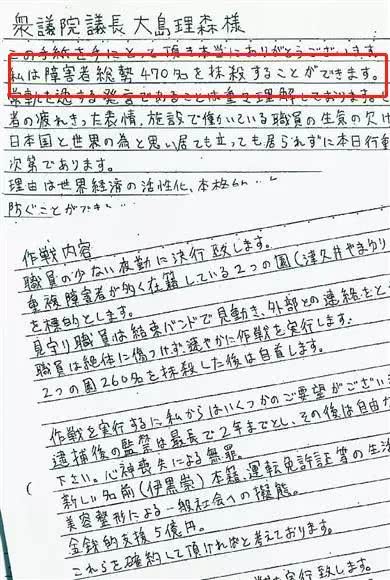 衆議院議長大島理森様
この手紙を手にとって頂き本当にありがとうございます。
私は障害者総勢470名を抹殺することができます。
常軌を逸する発言であることは重々理解しております。
者の疲れきった表情、施設で働いている職員の生気の欠け
日本国と世界の為と思い居ても立っても居られずに本日行動
次第であります。
理由は世界経済の活性化、本格的
防ぐことができ
作戦内容
職員の少ない夜勤に決行致します。
重複障害者が多く在籍している2つの園(津久井やまゆり
を標的とします。
見守り職員は結束バンドで見動き、外部との連絡をと
職員は絶体に傷つけず、速やかに作戦を実行します。
2つの園260名を抹殺した後は自首します。
作戦を実行するに私からはいくつかのご要望がござい
逮捕後の監禁は最長で2年までとし、その後は自由な
下さい。心神喪失による無罪。
新しい名前(伊黒崇)本籍、運転免許証等の生活
美容整形による一般社会への擬態。
金銭的支援5億円。
これらを確約して頂ければと考えております。